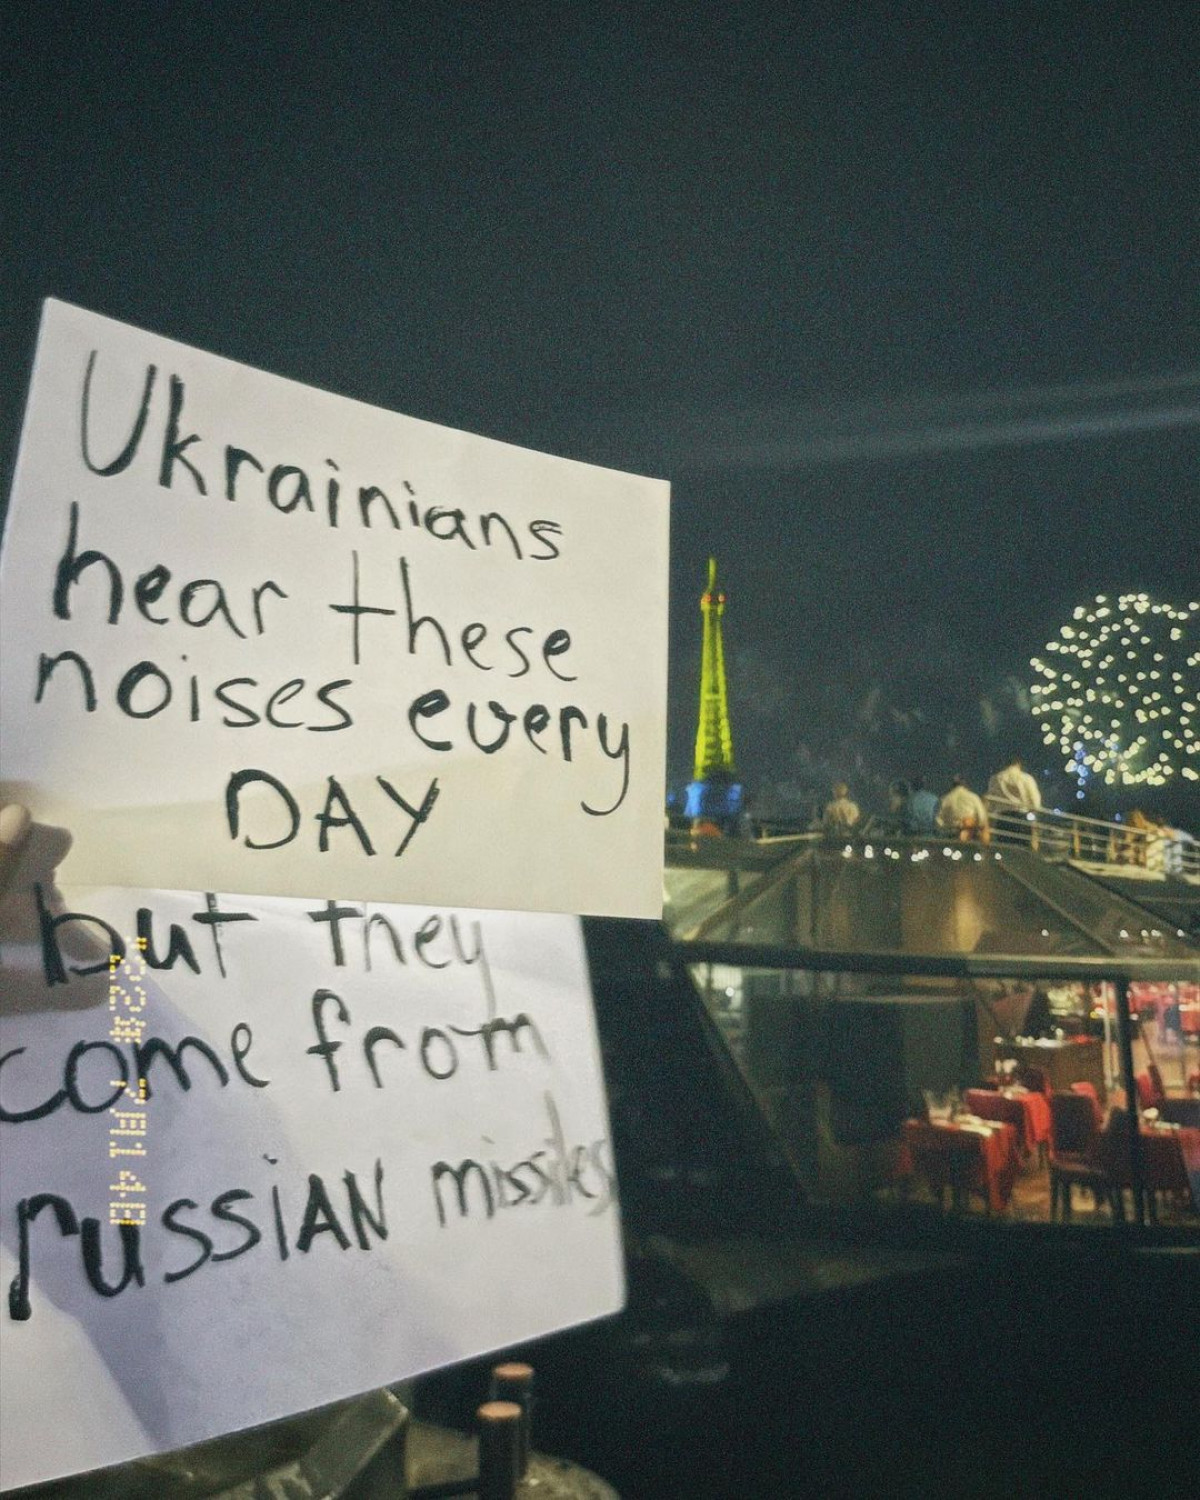 Ukrainians
hear these
noises every
DAY
but they
come from
russiAN missiles